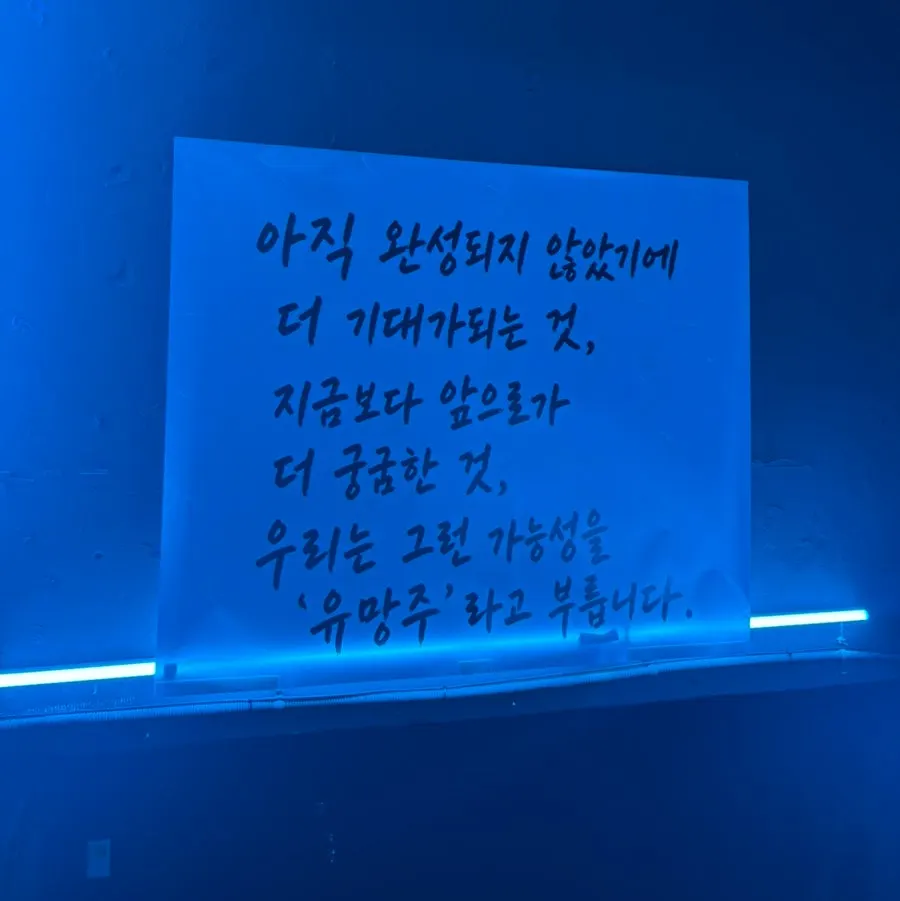 아직 완성되지 않았기에
더 기대가되는 것,
지금보다 앞으로가
더 궁굼한 것,
우리는 그런 가능성을
‘유망주’라고 부릅니다.